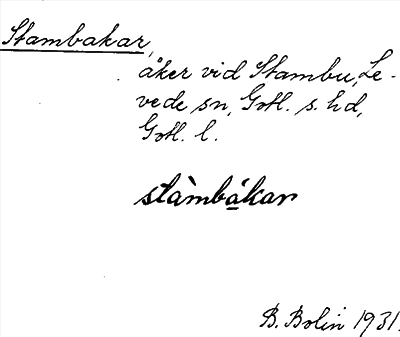 Stambakar,
åker vid Stambu, Le-
vede sn, Gotl. s. hd,
Gotl. l.
stàmbákar
B. Bolin 1931.